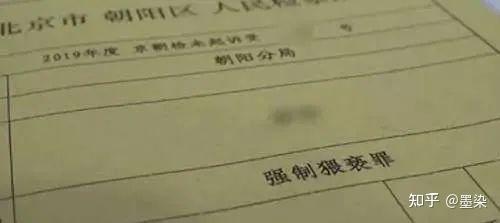 北京市 朝阳区 人民检察
2019年度 京朝检未起诉受 号
朝阳分局
强制猥亵罪
知乎 @墨染